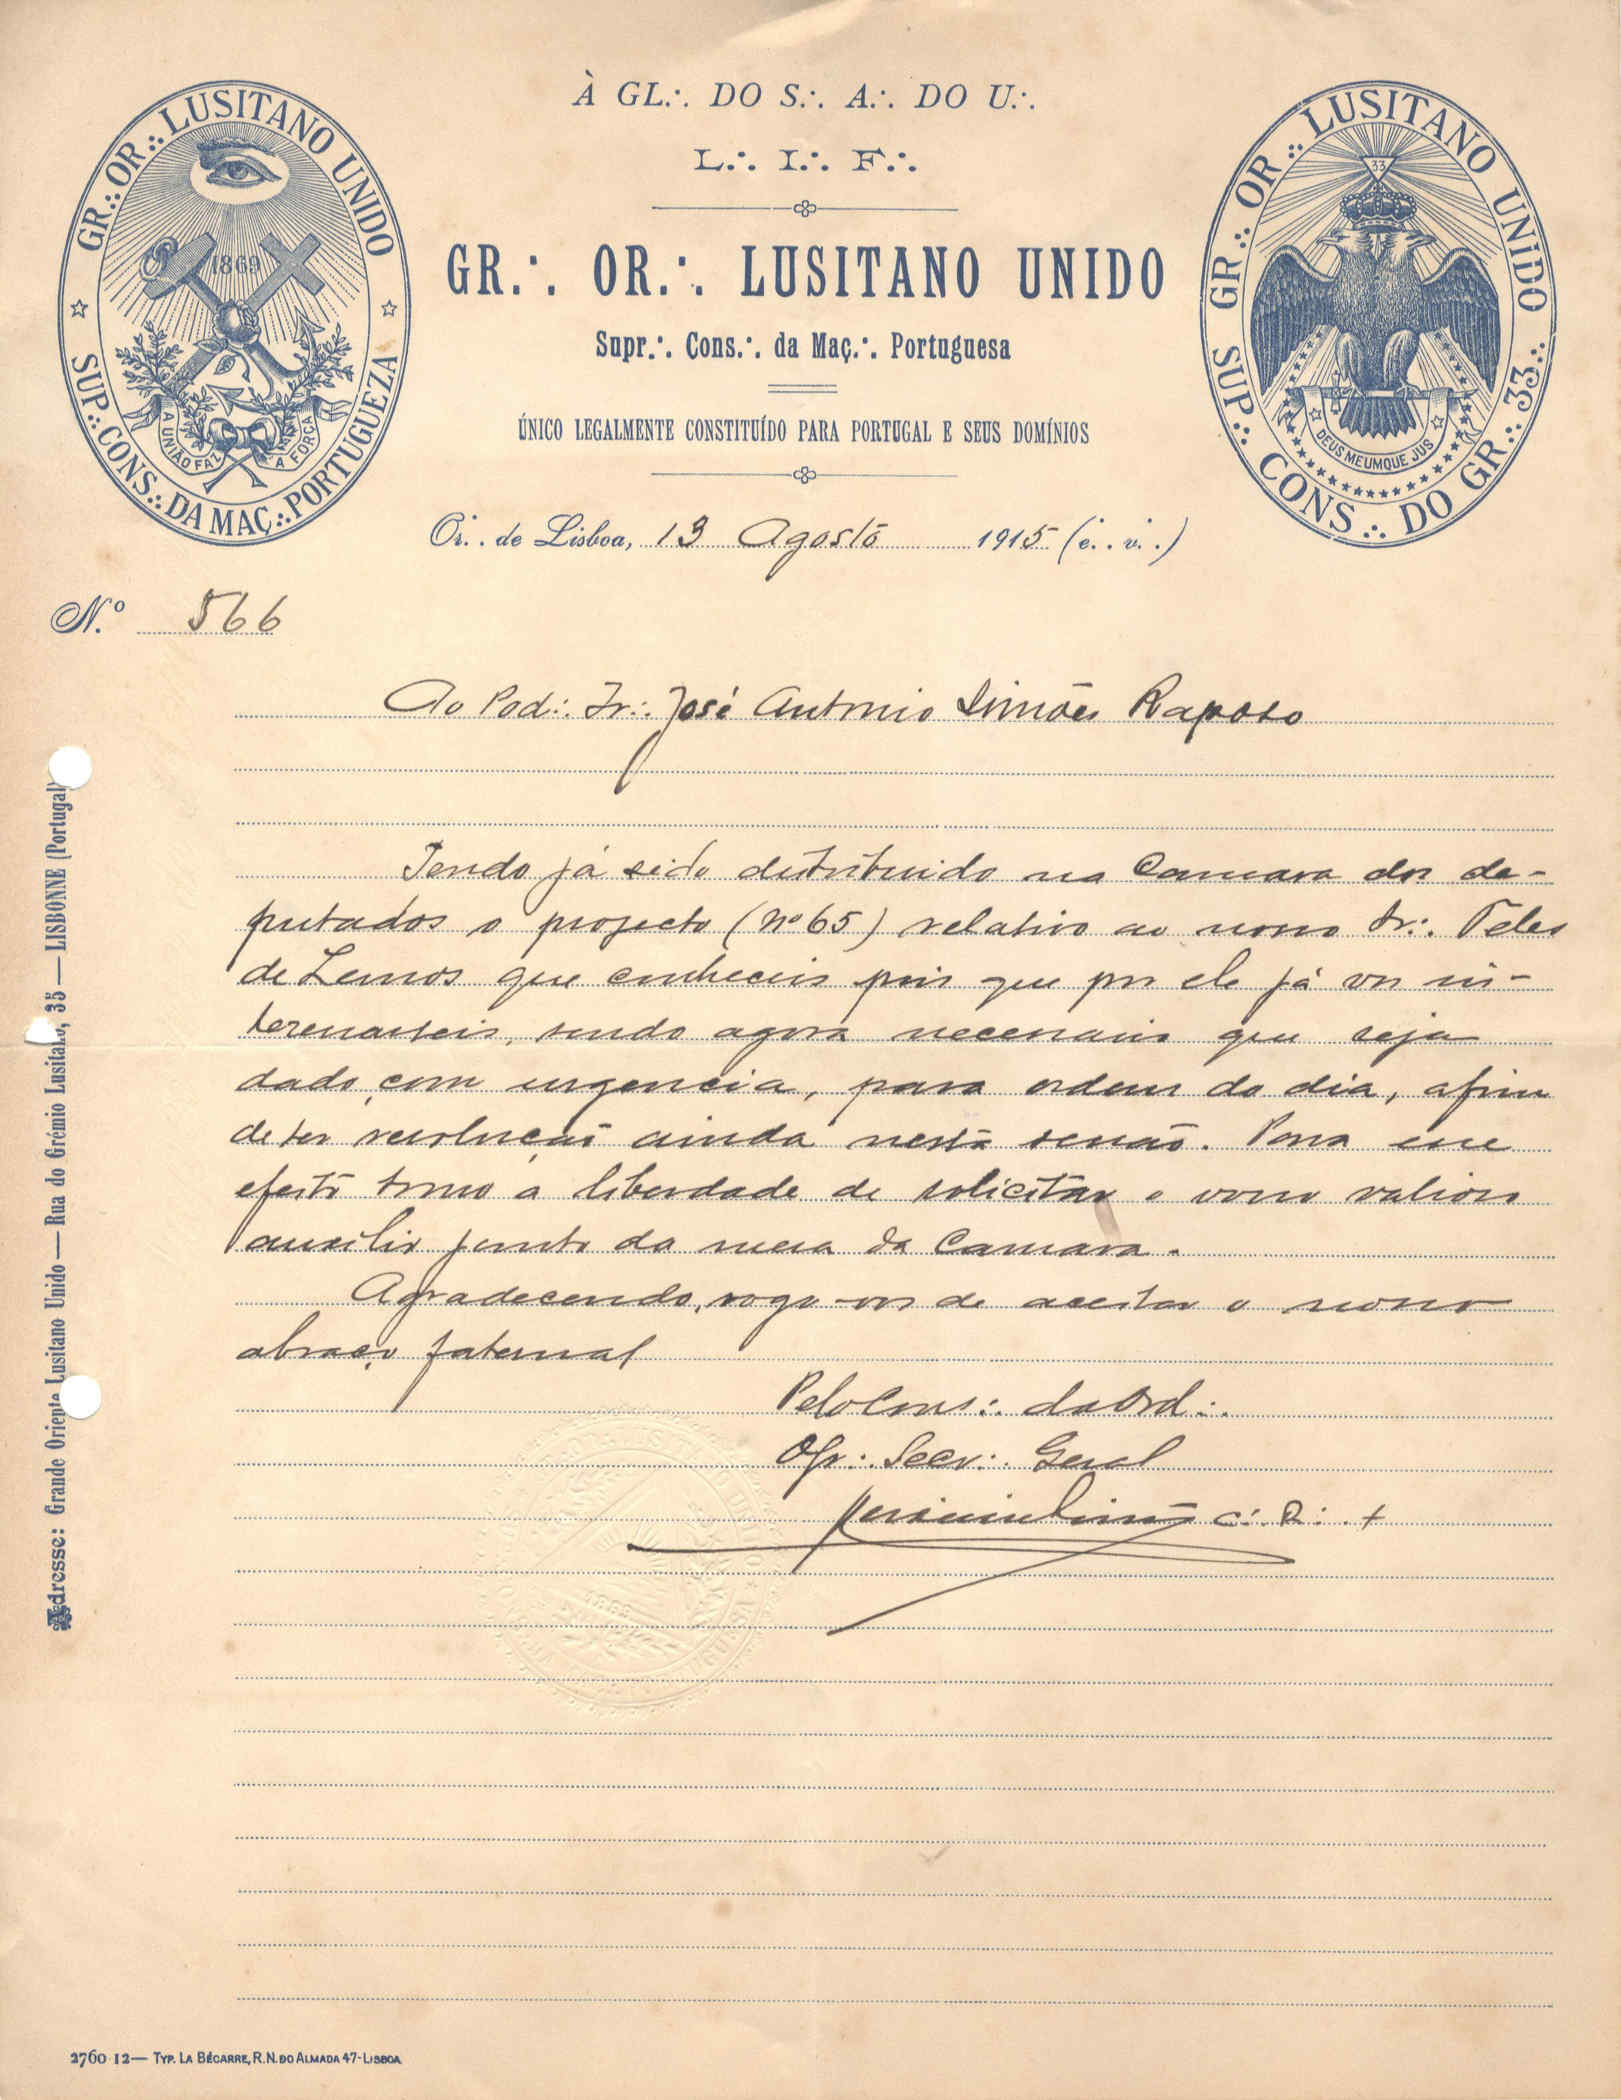 À GL∴ DO S∴ A∴ DO U∴
L∴ I∴ F∴
GR∴ OR∴ LUSITANO UNIDO
Supr∴ Cons∴ da Maç∴ Portuguesa
ÚNICO LEGALMENTE CONSTITUÍDO PARA PORTUGAL E SEUS DOMÍNIOS
GR∴ OR∴ LUSITANO UNIDO
SUP∴ CONS∴ DA MAÇ∴ PORTUGUEZA
1869
A UNIÃO FAZ A FORÇA
GR∴ OR∴ LUSITANO UNIDO
SUP∴ CONS∴ DO GR∴ 33∴
33
DEUS MEUMQUE JUS
Or∴ de Lisboa, 13 Agosto 1915 (e∴ v∴)
N.º 566
Ao Pod∴ Ir∴ José Antonio Simões Raposo
Tendo já sido distribuido na Camara dos de-
putados o projecto (nº 65) relativo ao nosso Ir∴ Teles
de Lemos que conheceis pois que por ele já vos in-
teressasteis, sendo agora necessario que seja
dado, com urgencia, para ordem do dia, afim
de ter resolução ainda nesta sessão. Para esse
efeito tomo a liberdade de solicitar o vosso valioso
auxilio junto da mesa da Camara.
Agradecendo, rogo-vos de aceitar o nosso
abraço fraternal
Pelo Cons∴ da Ord∴
O Gr∴ Secr∴ Geral
C∴ R∴ +
Adresse: Grande Oriente Lusitano Unido — Rua do Grémio Lusitano, 35 — LISBONNE (Portugal)
2760 12 — TYP. LA BÉCARRE, R. N. DO ALMADA 47-LISBOA